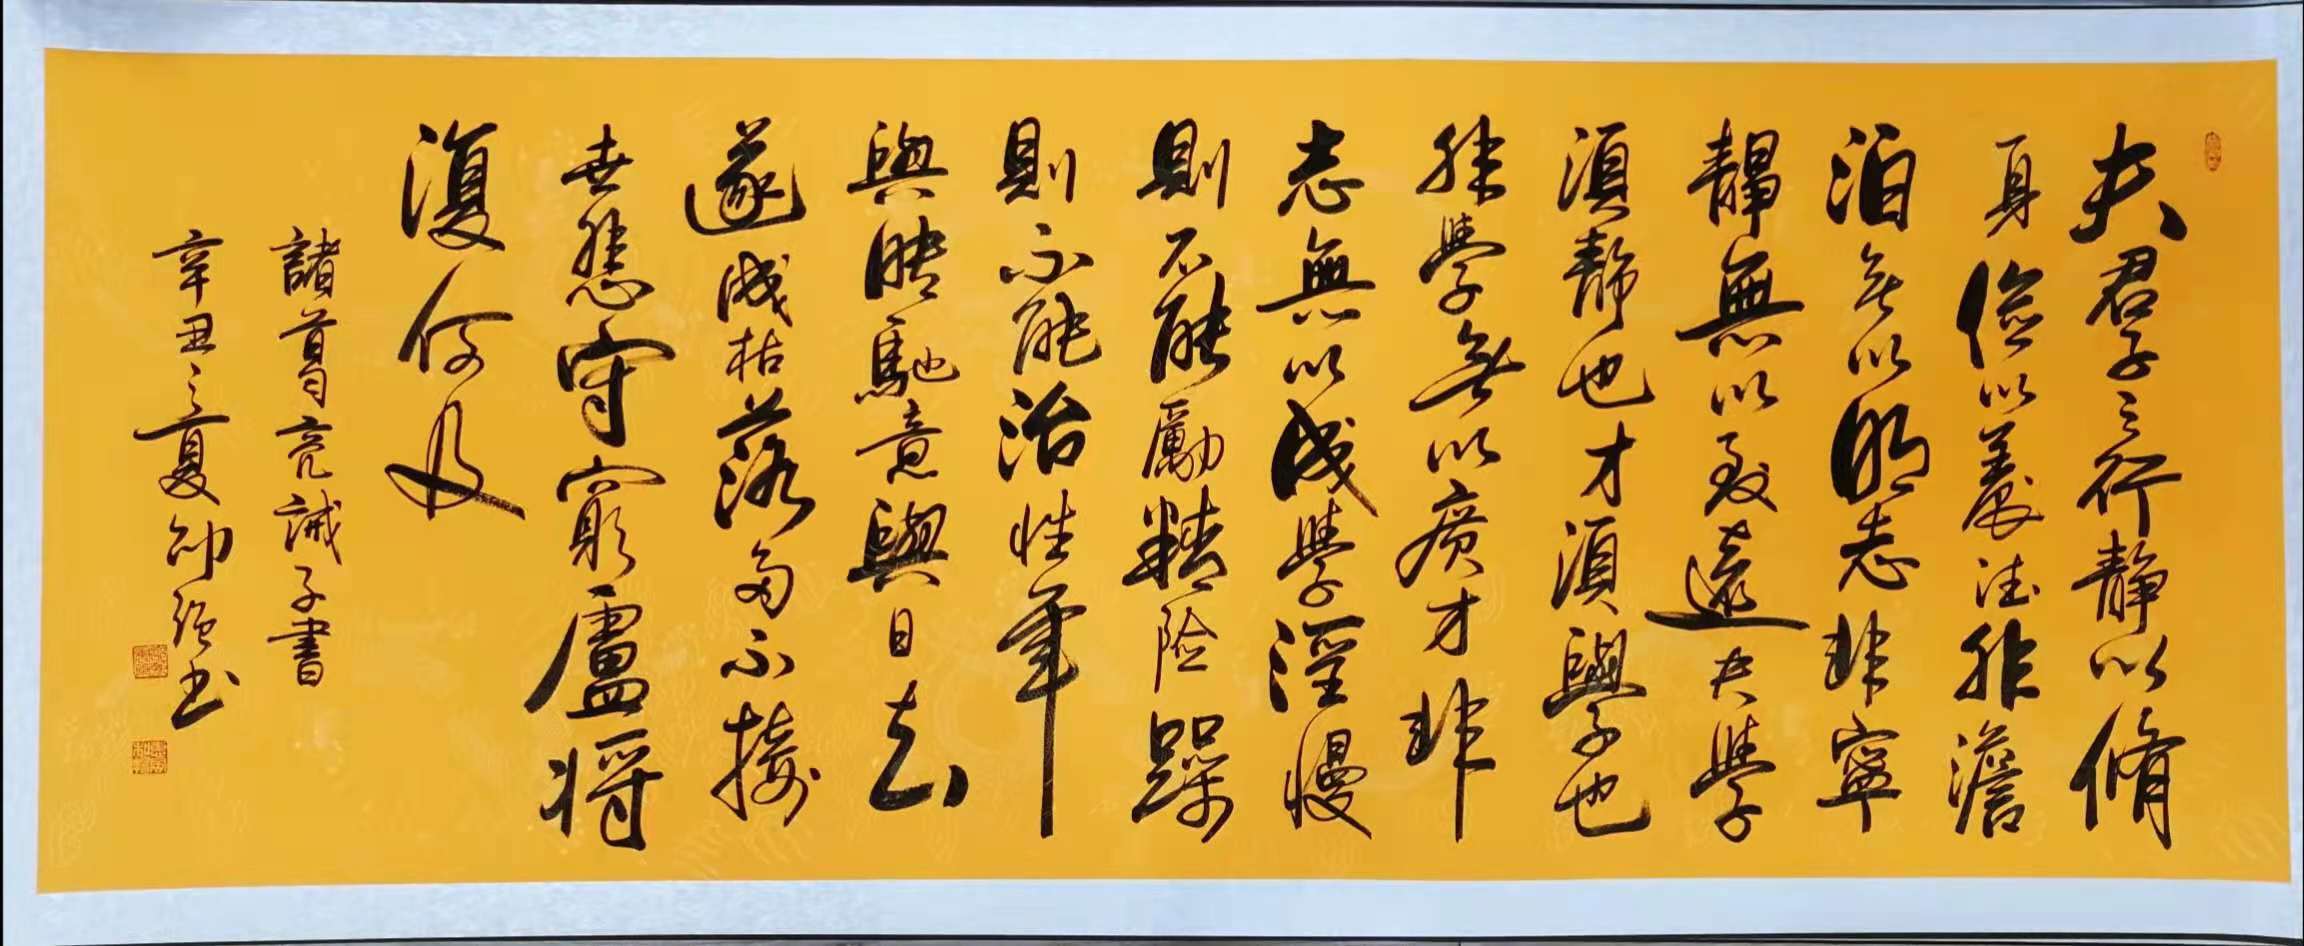 夫君子之行静以脩
身儉以養德非澹
泊無以明志非寧
靜無以致遠夫學
須静也才須學也
非學無以廣才非
志無以成學淫慢
則不能勵精險躁
則不能治性年
與時馳意與日去
遂成枯落多不接
世悲守窮廬将
復何及
諸葛亮誡子書
辛丑之夏 强书